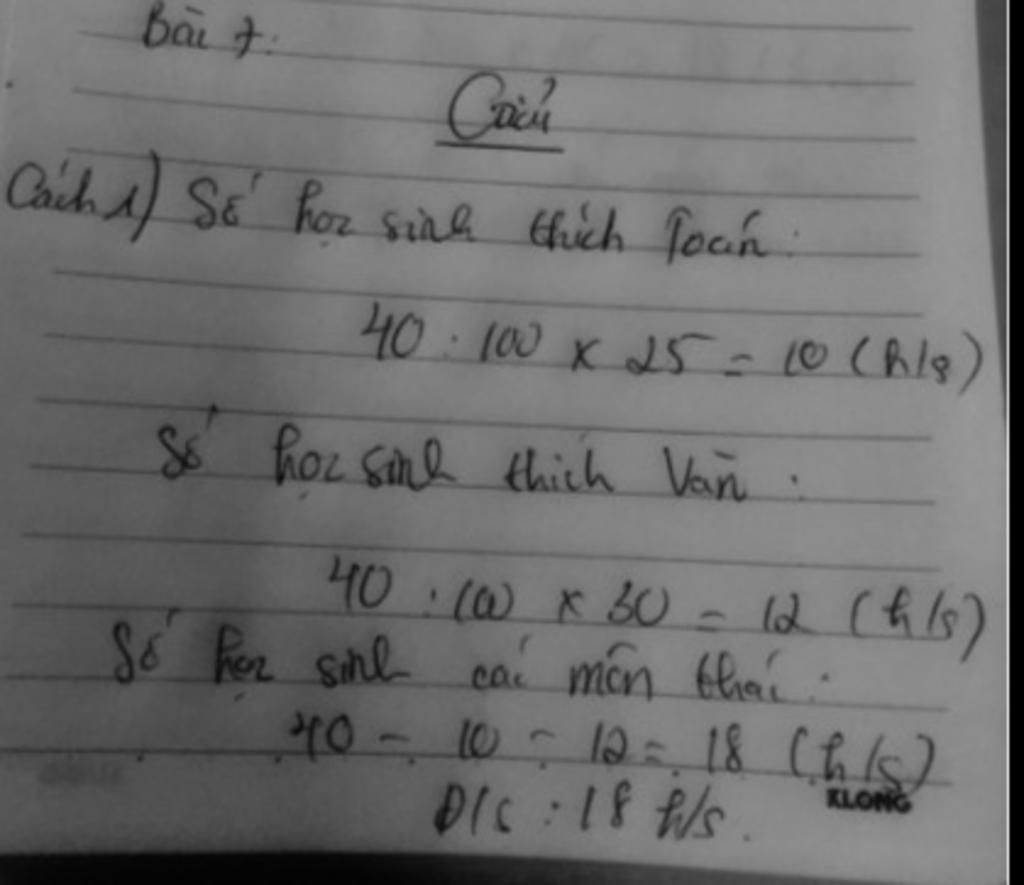 Bài 7:
Giải
Cách 1) Số học sinh thích Toán:
40 : 100 x 25 = 10 (h/s)
Số học sinh thích Văn :
40 : 100 x 30 = 12 (h/s)
Số học sinh các môn khác :
40 - 10 - 12 = 18 (h/s)
KLONG
Đ/S : 18 h/s.